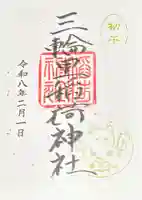 初午
三輪里稲荷神社
令和八年二月一日